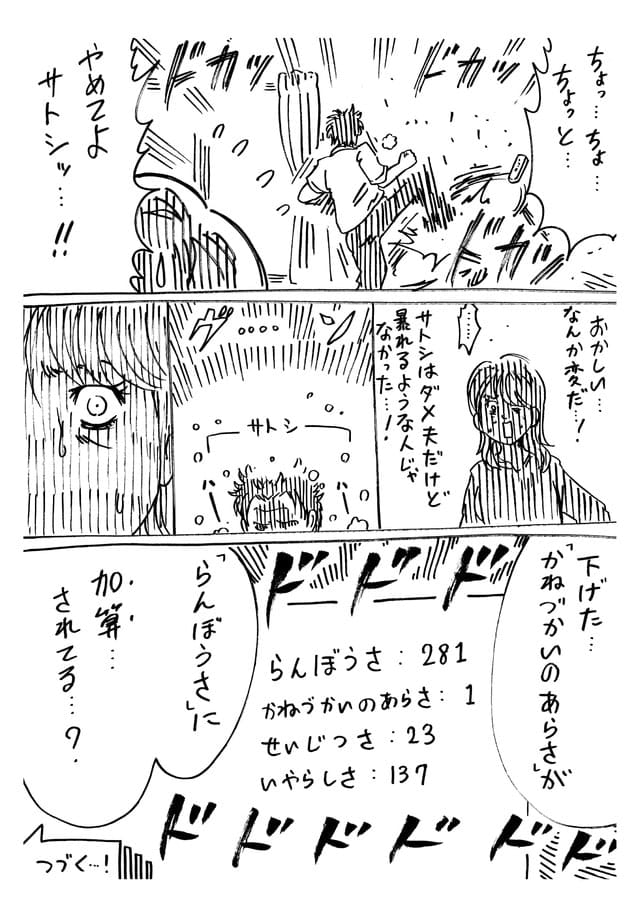 ちょっ…ちょ…
ちょっと…
ドカッ
ドカッ
ドカッ
やめてよ
サトシッ…!!
おかしい…
なんか変だ…!
……
サトシはダメ夫だけど
暴れるような人じゃ
なかった…!
サトシ
ハー
ハー
下げた…
「かねづかいのあらさ」が
ドドド
らんぼうさ:281
かねづかいのあらさ:1
せいじつさ:23
いやらしさ:137
「らんぼうさ」に
加算…
されてる…?
ドドドドドド
つづく…!